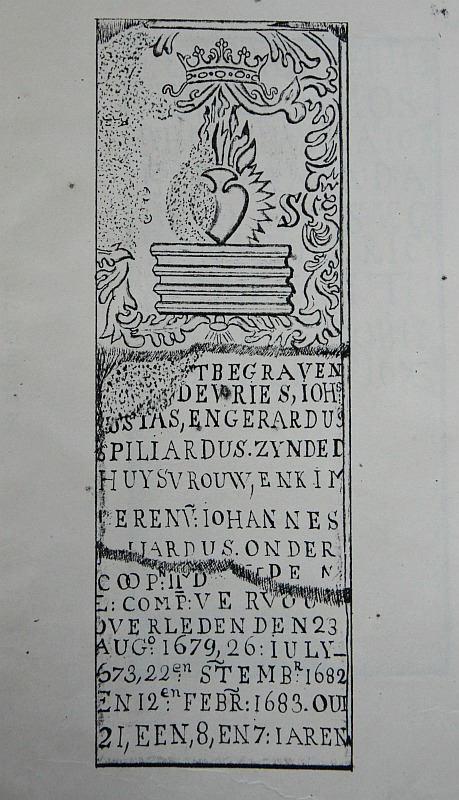 S
TBEGRAVEN
DEVRIES, IOHS
USTAS, ENGERARDUS
SPILIARDUS. ZYNDE D
HUYSVROUW, EN KIM
ERENV: IOHANNES
LIARDUS. ONDER
COOP: DEN
E: COMP: VERVOU
OVERLEDEN DEN 23
AUGO. 1679, 26: IULY
673, 22en STEMBR. 1682
EN 12en FEBR: 1683. OUD
21, EEN, 8, EN 7: IAREN